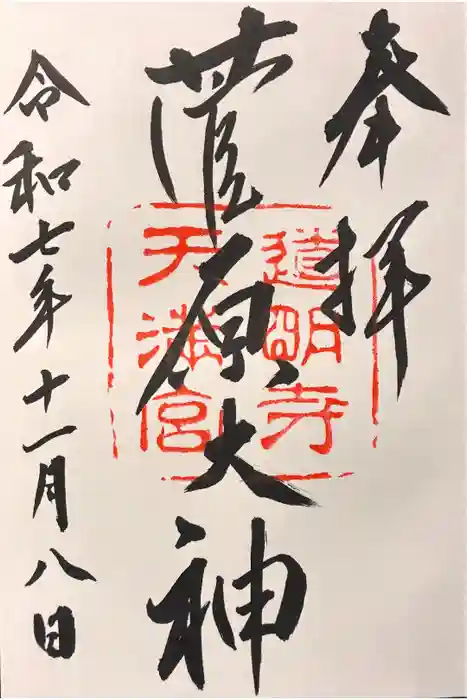 奉拝
道明寺
天満宮
菅原大神
令和七年十一月八日